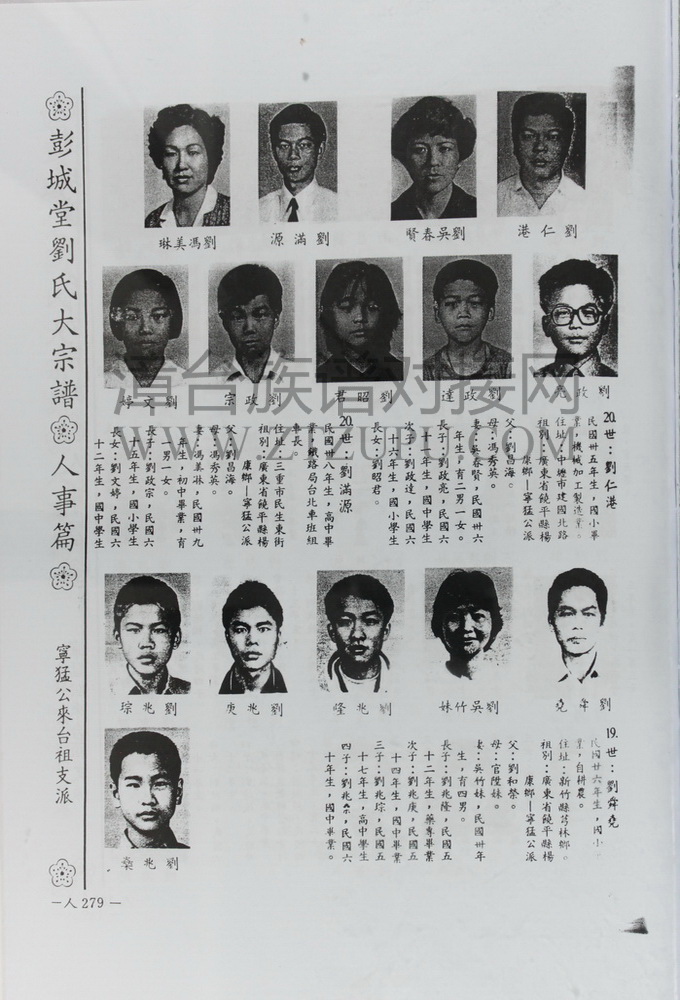 彭城堂劉氏大宗譜
人事篇
寧猛公來台祖支派
—人279—
劉仁港
劉吳春賢
劉滿源
劉馮美琳
劉政亮
劉政達
劉昭君
劉政宗
劉文婷
20.世：劉仁港
民國卅五年生，國小畢
業，機械加工製造業。
住址：中壢市建國北路
祖別：廣東省饒平縣楊
康鄉—寧猛公派
父：劉昌海。
母：馮秀英。
妻：吳春賢，民國卅六
年生。有二男一女。
長子：劉政亮，民國六
十年生，國中學生
次子：劉政達，民國六
十六年生，國小學生
長女：劉昭君。
20.世：劉滿源
民國卅八年生，高中畢
業，鐵路局台北車班組
車長
住址：三重市民生東街
祖別：廣東省饒平縣楊
康鄉—寧猛公派
父：劉昌海。
母：馮秀英。
妻：馮美琳，民國卅九
年生，初中畢業，有
一男一女。
長子：劉政宗，民國六
十五年生，國小學生
長女：劉文婷，民國六
十二年生，國中學生
劉舜堯
劉吳竹妹
劉兆隆
劉兆庚
劉兆琮
劉兆
19.世：劉舜堯
民國廿六年生，國小
業，自耕農。
住址：新竹縣芎林鄉。
祖別：廣東省饒平縣楊
康鄉—寧猛公派
父：劉和榮。
母：官陞妹。
妻：吳竹妹，民國卅年
生，有四男。
長子：劉兆隆，民國五
十二年生，藥專畢業
次子：劉兆庚，民國五
十四年生，國中畢業
三子：劉兆琮，民國五
十七年生，高中學生
四子：劉兆，民國六
十年生，國中畢業。
滇台族谱对接网
WWW.ZTZUTU.COM